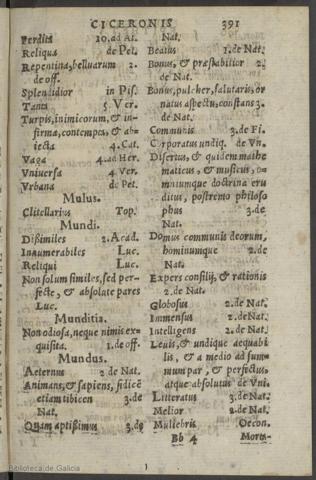 CICERONIS 391
Perdita 10. ad At.
Reliqua de Pet.
Repentina, belluarum 2.
de off.
Splendidior in Pis.
Tanti 5. Ver.
Turpis, inimicorum, & in-
firma, contempta, & ab-
iecta 4. Cat.
Vaga 4. ad Her.
Vniuersa 4. Ver.
Vrbana de Pet.
Mulus.
Clitellarius Top.
Mundi.
Dissimiles 2. Acad.
Innumerabiles Luc.
Reliqui Luc.
Non solum similes, sed per-
fecte, & absolute pares
Luc.
Munditia.
Non odiosa, neque nimis ex-
quisita. 1. de off.
Mundus.
Aeternus 2 de Nat.
Animans, & sapiens, fidicẽ
etiam tibicen 3. de
Nat.
Quam aptissimus 3. de
Nat.
Beatus 1. de Nat.
Bonus, & præstabilior 2.
de Nat.
Bonus, pulcher, salutaris, or
natus aspectu, constans 3.
de Nat.
Communis 3. de Fi.
Corporatus undiq. de Vn.
Disertus, & quidem mathe
maticus, & musicus, o-
mniumque doctrina eru
ditus, postremo philoso
phus 3. de
Nat.
Domus communis deorum,
hominumque 2. de
Nat.
Expers consilij, & rationis
2. de Nat.
Globosus 2. de Nat.
Immensus 2. de Nat.
Intelligens 2. de Nat.
Leuis, & undique æquabi
lis, & a medio ad sum-
mum par, & perfectus,
atque absolutus de Vni.
Litteratus 3. de Nat.
Melior 2. de Nat.
Muliebris Oecon.
Bb 4 Morta-
Biblioteca de Galicia